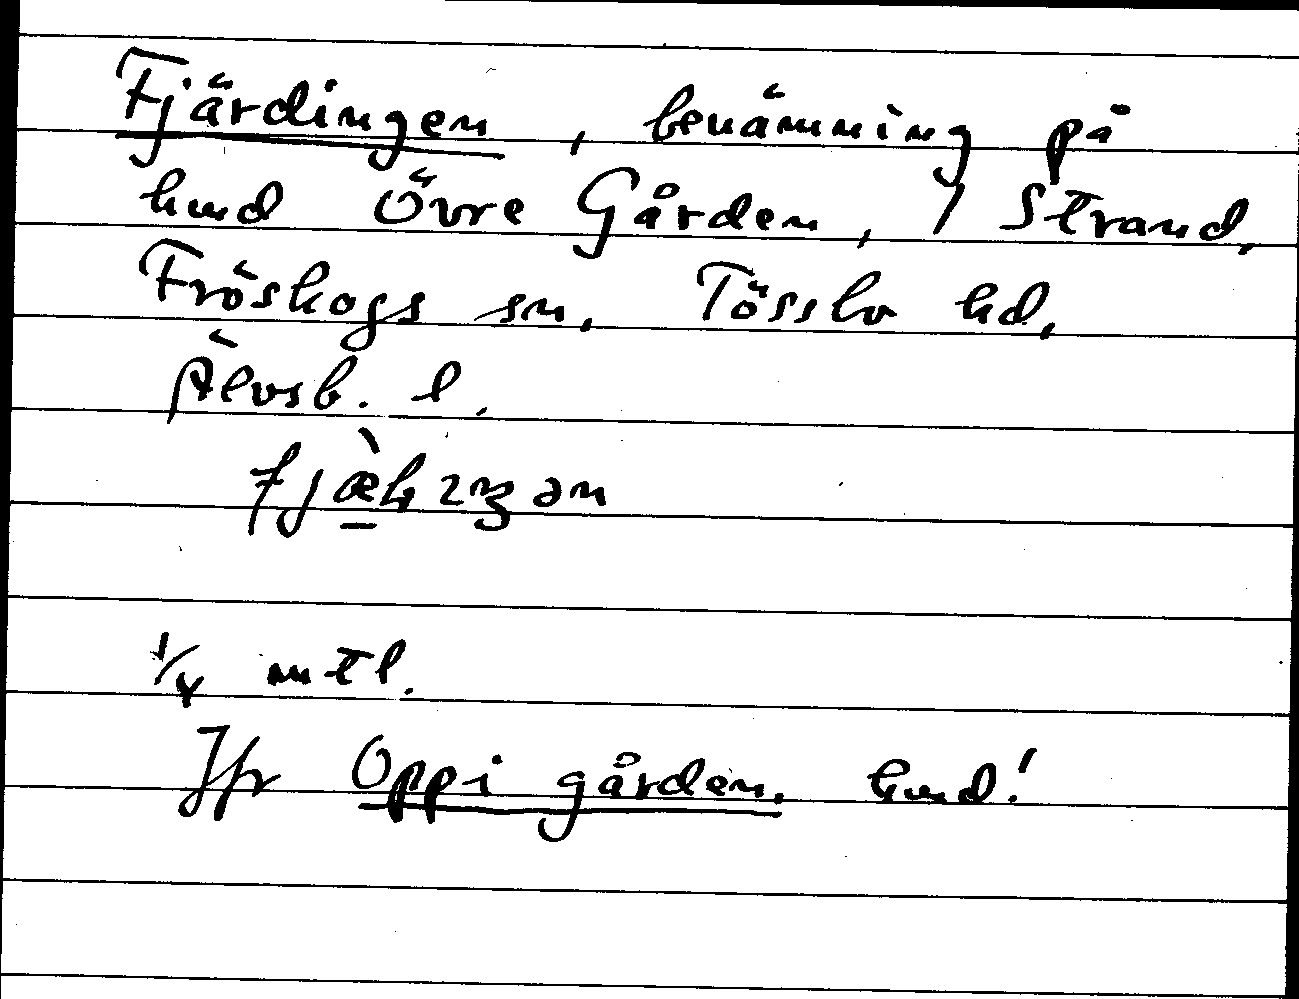 Fjärdingen, benämning på
hmd Övre Gården, 1 Strand,
Fröskogs sn, Tössbo hd,
Älvsb. l.
1/4 mtl.
Jfr Oppi gården. hmd!